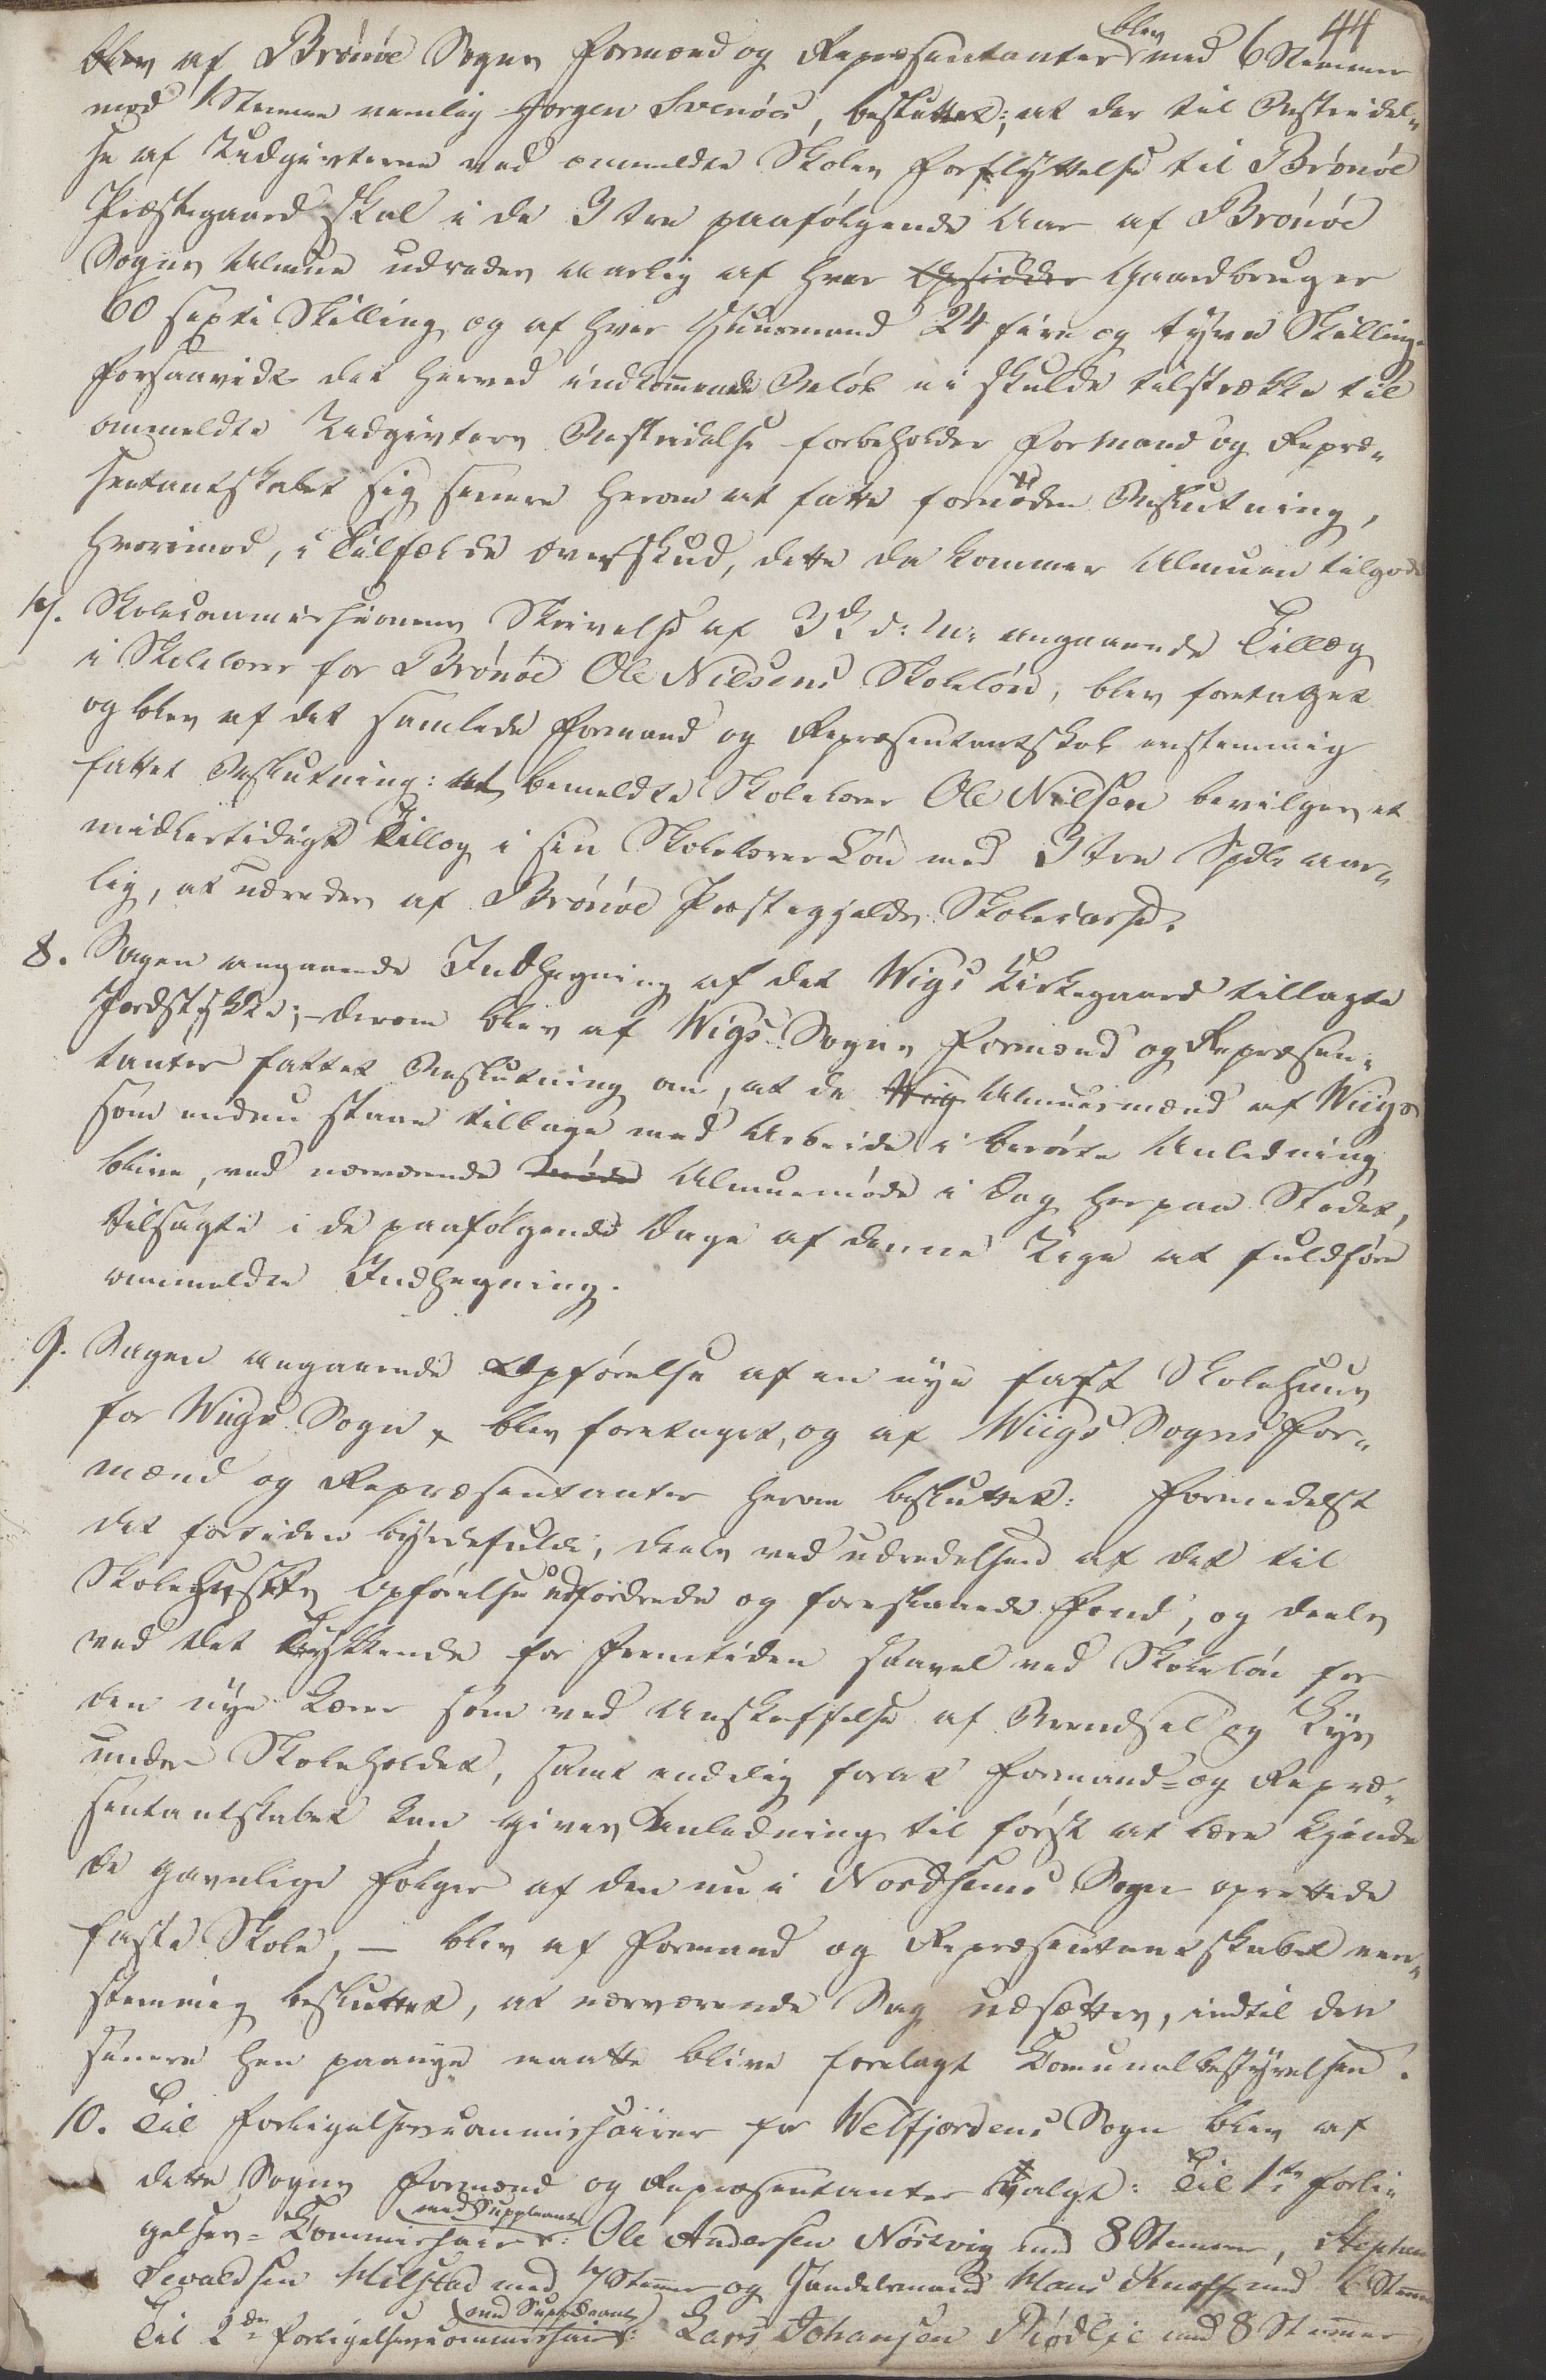 44
blev af Brønøe Sogns Formænd og Repræsentanter blev med 6 Stemmer
mod 1 Stemme nemlig Jørgen Svenøes, besluttet; at der til Bestridel-
se af Udgivterne ved ommeldte Skoles Forflyttelse til Brønøe
Præstegaard skal i de 3 tre paafølgende Aar af Brønøe
Sogns Almue udredes aarlig af hver Opsidder Gaardbruger
60 sexti Skilling og af hver Huusmand 24 fire og tyve Skilling.
Forsaavidt det herved indkommende Beløb ei skulde tilstrække til
ommeldte Udgivters Bestridelse forbeholder Formand og Repræ-
sentantskabet sig senere herom at fatte fornøden Beslutning,
hvorimod, i Tilfælde Overskud, dette da kommer Almuen tilgode
7. Skolecommissionens Skrivelse af 3d d: M: angaaende Tillæg
i Skolelærer for Brønøe Ole Nilsens Skoleløn, blev foretaget
og blev af det samlede Formand og Repræsentantskab enstemmig
fattet Beslutning: at bemeldte Skolelærer Ole Nilsen bevilges et
midlertidigt Tillæg i sin Skolelærer Løn med 3 tre Spdlr aar-
lig, at udredes af Brønøe Præstegjelds Skolecasse.
8. Sagen angaaende Indhegning af det Wigs Kirkegaard tillagte
Jordstykke; derom blev af Wigs Sogns Formænd og Repræsen-
tanter fattet Beslutning om, at de Almuesmænd af Wiigs
som endnu staae tilbage med Arbeide i berørte Anledning
blive, ved nærværende Møde Almuemøde i Dag herpaa Stedet,
tilsagte i de paafølgende Dage af denne Uge at fuldføre
ommeldte Indhegning.
9. Sagen angaaende Opførelse af en nye fast Skolehuus
for Wiigs Sogn blev foretaget, og af Wiigs Sogns For-
mænd og Repræsentanter herom besluttet: Formedelst
det fortiden byrdefulde, deels ved udredelsen af det til
Skolehusets Opførelse udfordrede og forestaaende Fond, og deels
ved det Trykkende for Fremtiden saavel ved Skoleløn for
den nye Lærer som ved Anskaffelse af Brendsel og Lys
under Skoleholdet, samt endelig forat Formand- og Repræ-
sentantskabet kan gives Anledning til først at lære kjende
de gavnlige Følger af den nu i Nordhuus Sogn oprettede
faste Skole, — blev af Formand og Repræsentantskabet een-
stemmig besluttet, at nærværende Sag udsættes, indtil den
senere hen paanye maatte blive forelagt Komunalbestyrelsen.
10. Til Forligelsescommissairer for Welfjordens Sogn blev af
dette Sogns Formænd og Repræsentanter valgt: Til 1ste Forli-
gelses-Kommissair med Suppleant: Ole Andersen Nøsvig med 8 Stemmer, Stephen
Sevaldsen Milstad med 7 Stemmer og Handelsmand Hans Knoff med 6 Stemmer
Til 2den Forligelsescommissair med Suppleant: Lars Johansen Rødlie med 8 Stemmer